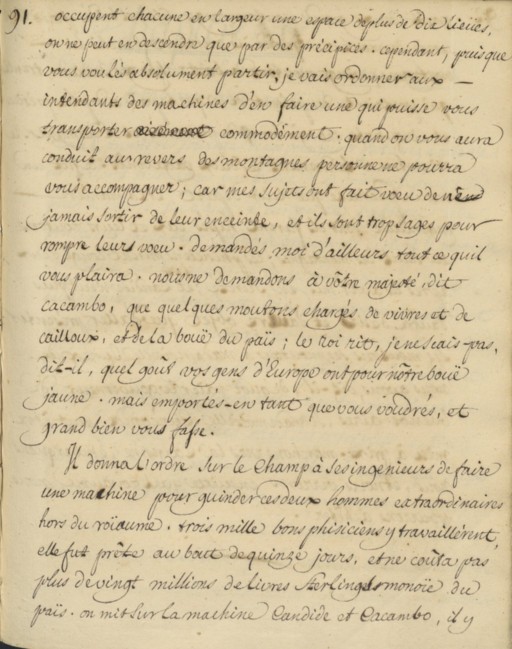 91. occupent chacune en largeur une espace de plus de Dix Lieües,
on ne peut en descendre que par des précipices. cependant, puisque
vous voulés absolument partir, je vais ordonner aux
intendants des machines d'en faire une qui puisse vous
transporter commodément. quand on vous aura
conduit au revers des montagnes, personne ne pourra
vous accompagner; car mes sujets ont fait voeu de
jamais sortir de leur enceinte, et ils sont trop sages pour
rompre leurs voeu. demandés, moi d'ailleurs, tout ce quil
vous plaira. nous ne demandons à vôtre majesté, dit
cacambo, que quelques moutons chargés de vivres et de
cailloux, et de la bouë du païs; le roi rit, je ne scais-pas,
dit-il, quel goût vos gens d'Europe ont pour nôtre bouë
jaune. mais emportés-en tant que vous voudrés, et
grand bien vous fasse.
Il donna l'ordre sur le champ à ses ingenieurs de faire
une machine pour guinder ces deux hommes extraordinaires
hors du roïaume. trois mille bons phisiciens y travaillérent,
elle fut prête au bout de quinze jours, et ne coûta pas
plus de vingt millions de livres sterlings monoïe du
païs. on mit sur la machine Candide et Cacambo, il y